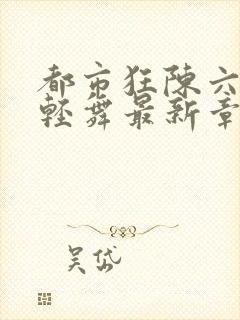 都市狂陈六
轻舞最新章
吴岱